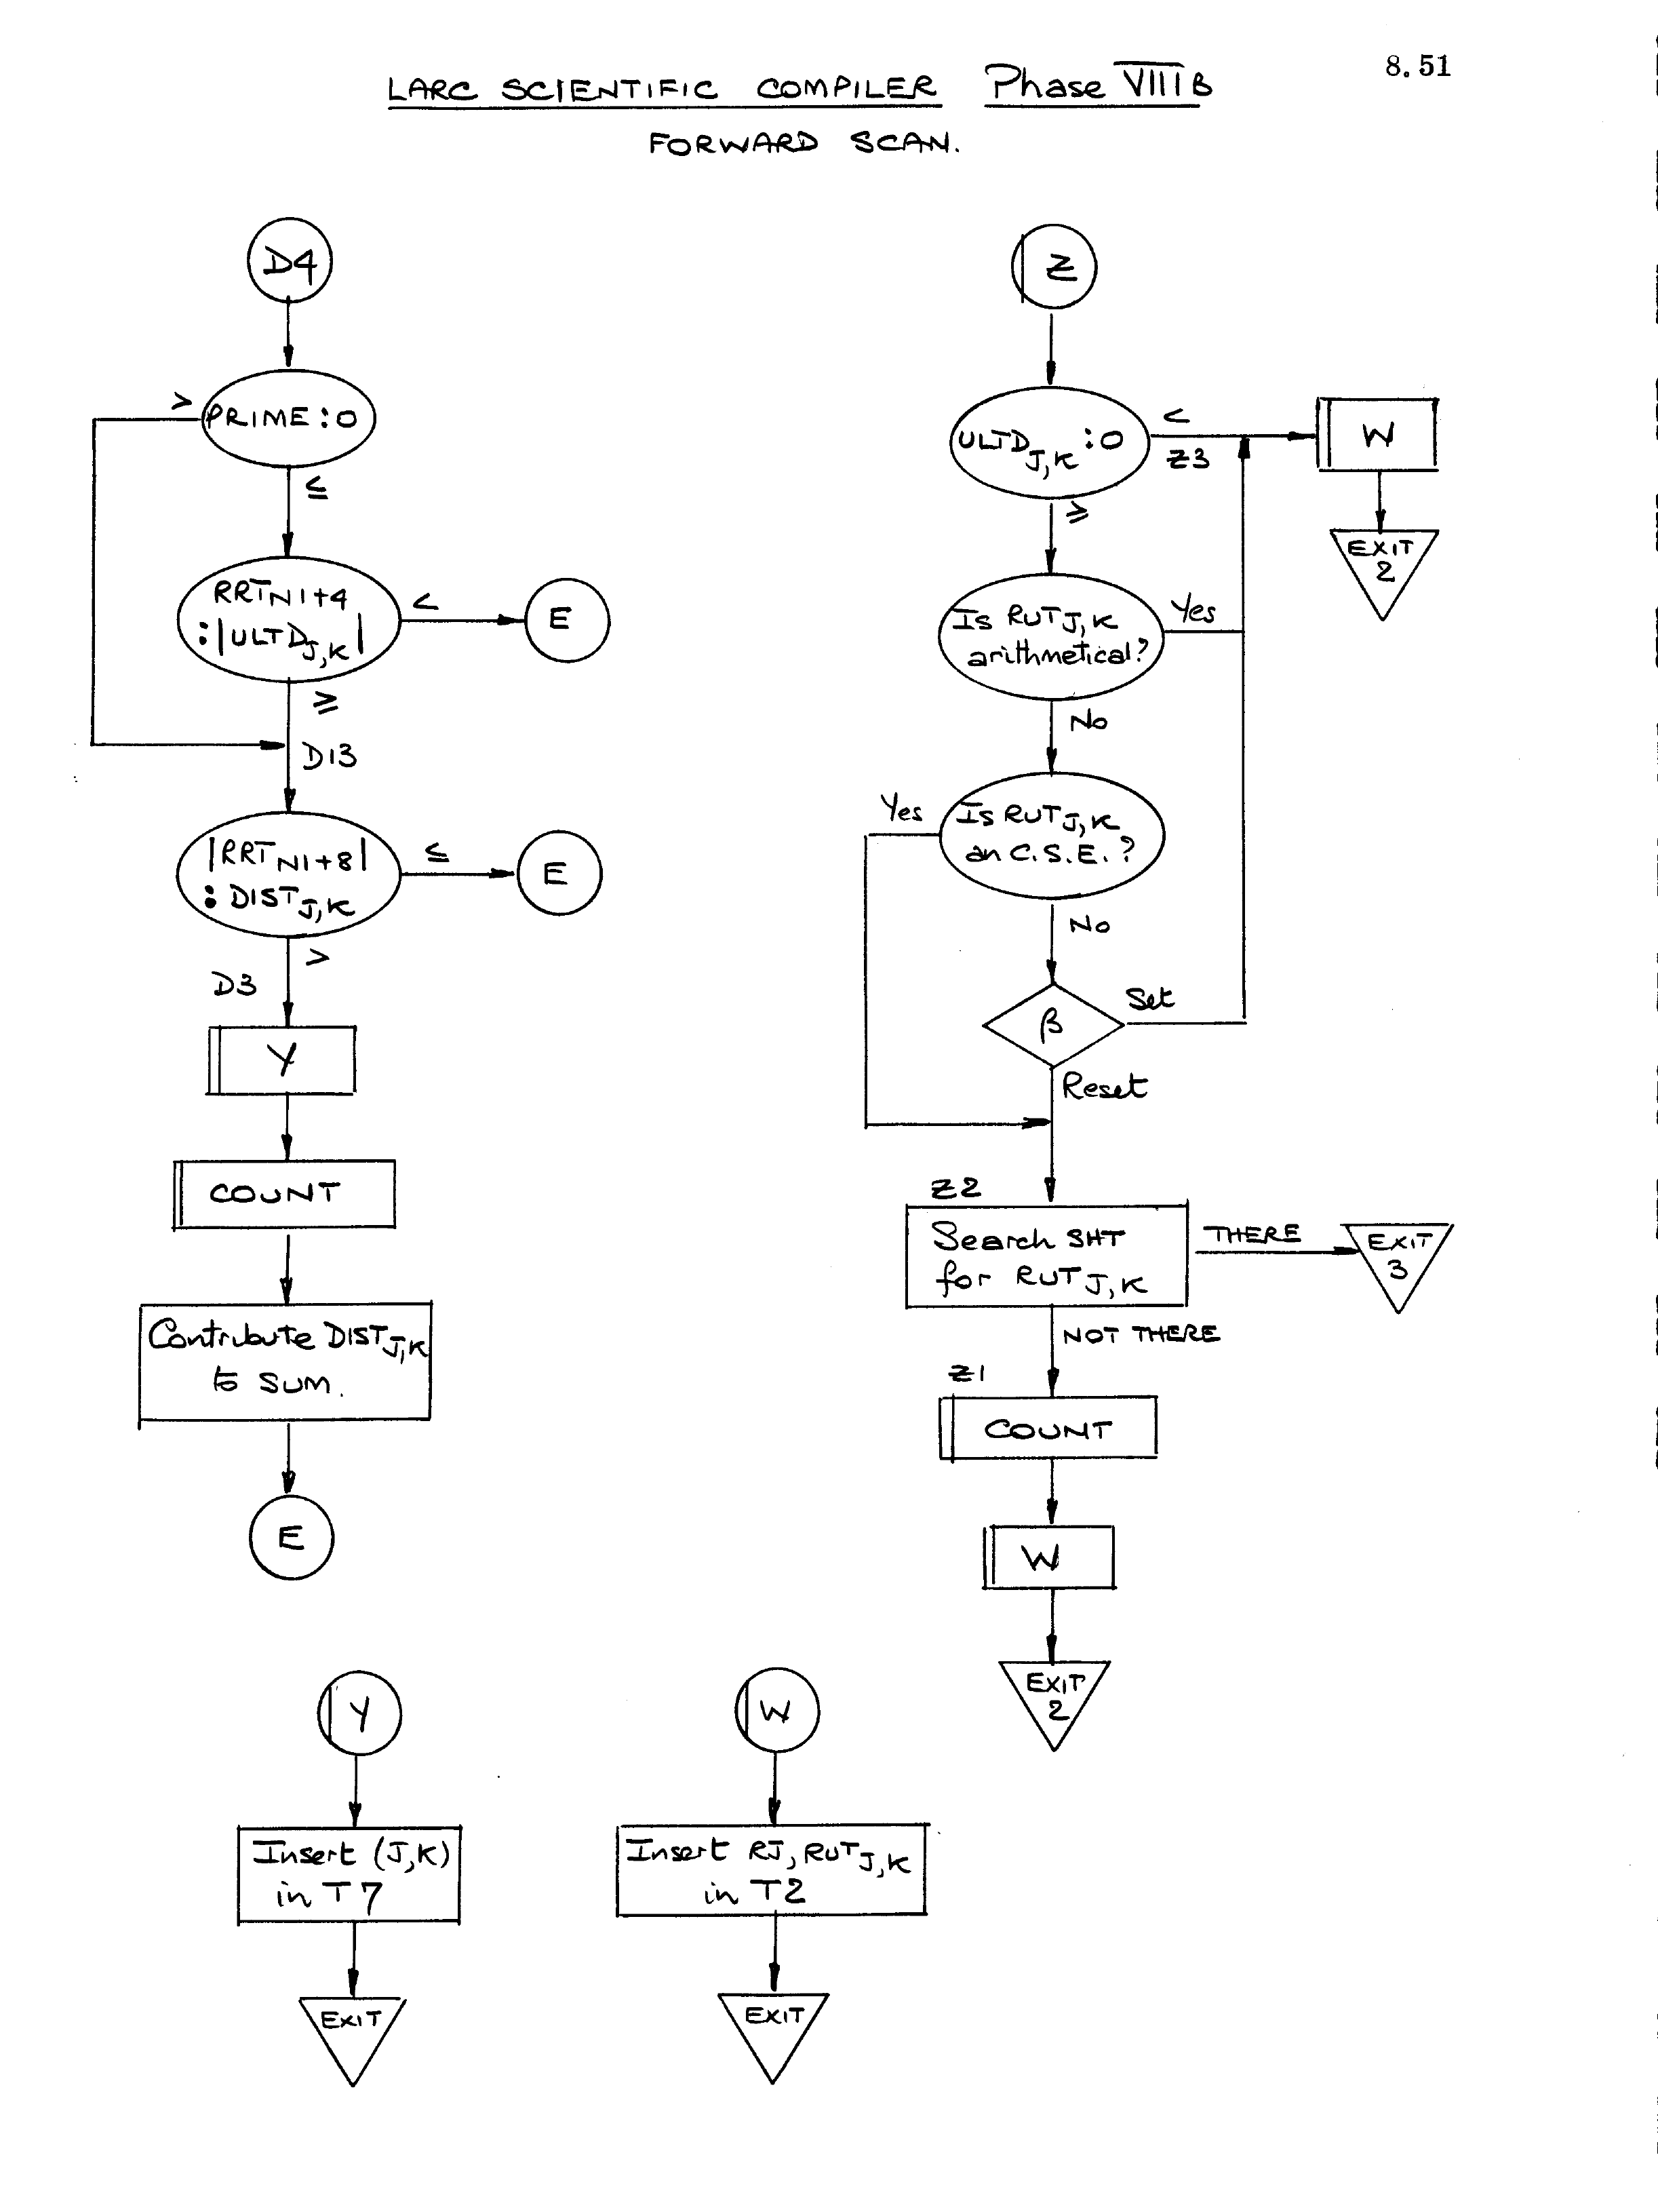 8.51
LARC SCIENTIFIC COMPILER Phase VIIIB
FORWARD SCAN.
D4
PRIME:0
>
≤
RRT N1+4
:|ULTD J,K|
<
E
≥
D13
|RRT N1+8|
: DIST J,K
≤
E
>
D3
Y
COUNT
Contribute DIST J,K
to SUM.
E
Z
ULTD J,K :0
<
Z3
W
EXIT
2
≥
Is RUT J,K
arithmetical?
Yes
No
Is RUT J,K
an C.S.E.?
Yes
No
β
Set
Reset
Z2
Search SHT
for RUT J,K
THERE
EXIT
3
NOT THERE
Z1
COUNT
W
EXIT
2
Y
Insert (J,K)
in T7
EXIT
W
Insert RJ, RUT J,K
in T2
EXIT